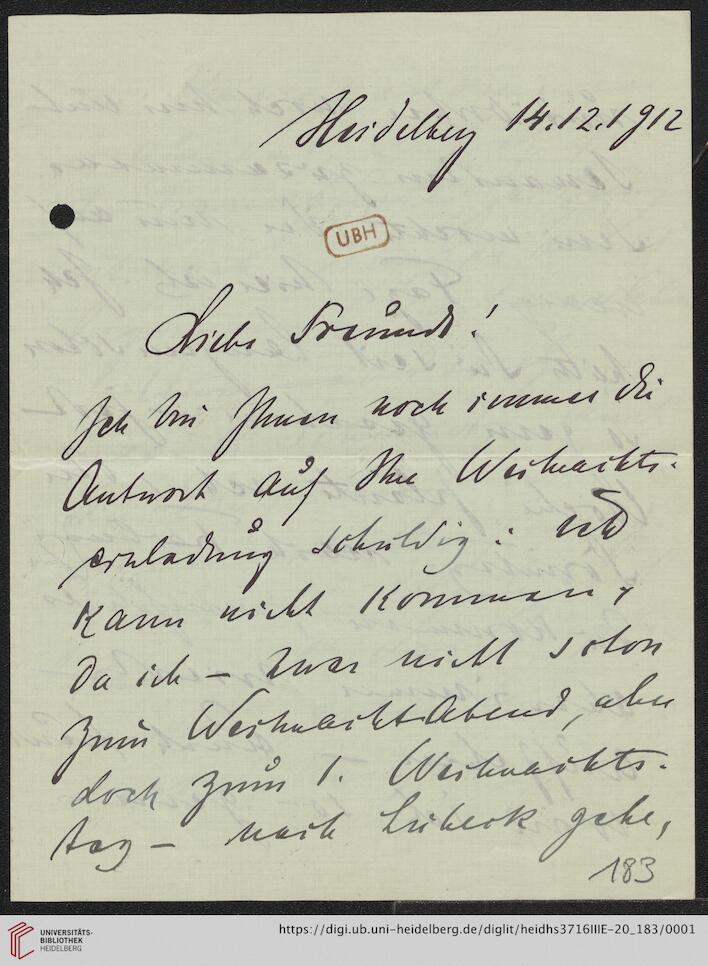 Heidelberg 14.12.1912
UBH
Liebe Freunde!
Ich bin Ihnen noch immer die
Antwort auf Ihre Weihnachts-
einladung schuldig: ich
kann nicht kommen,
da ich – zwar nicht schon
zum Weihnachtabend, aber
doch zum 1. Weihnachts-
tag – nach Lübeck gehe,
183
UNIVERSITÄTS-
BIBLIOTHEK
HEIDELBERG
https://digi.ub.uni-heidelberg.de/diglit/heidhs3716IIIE-20_183/0001